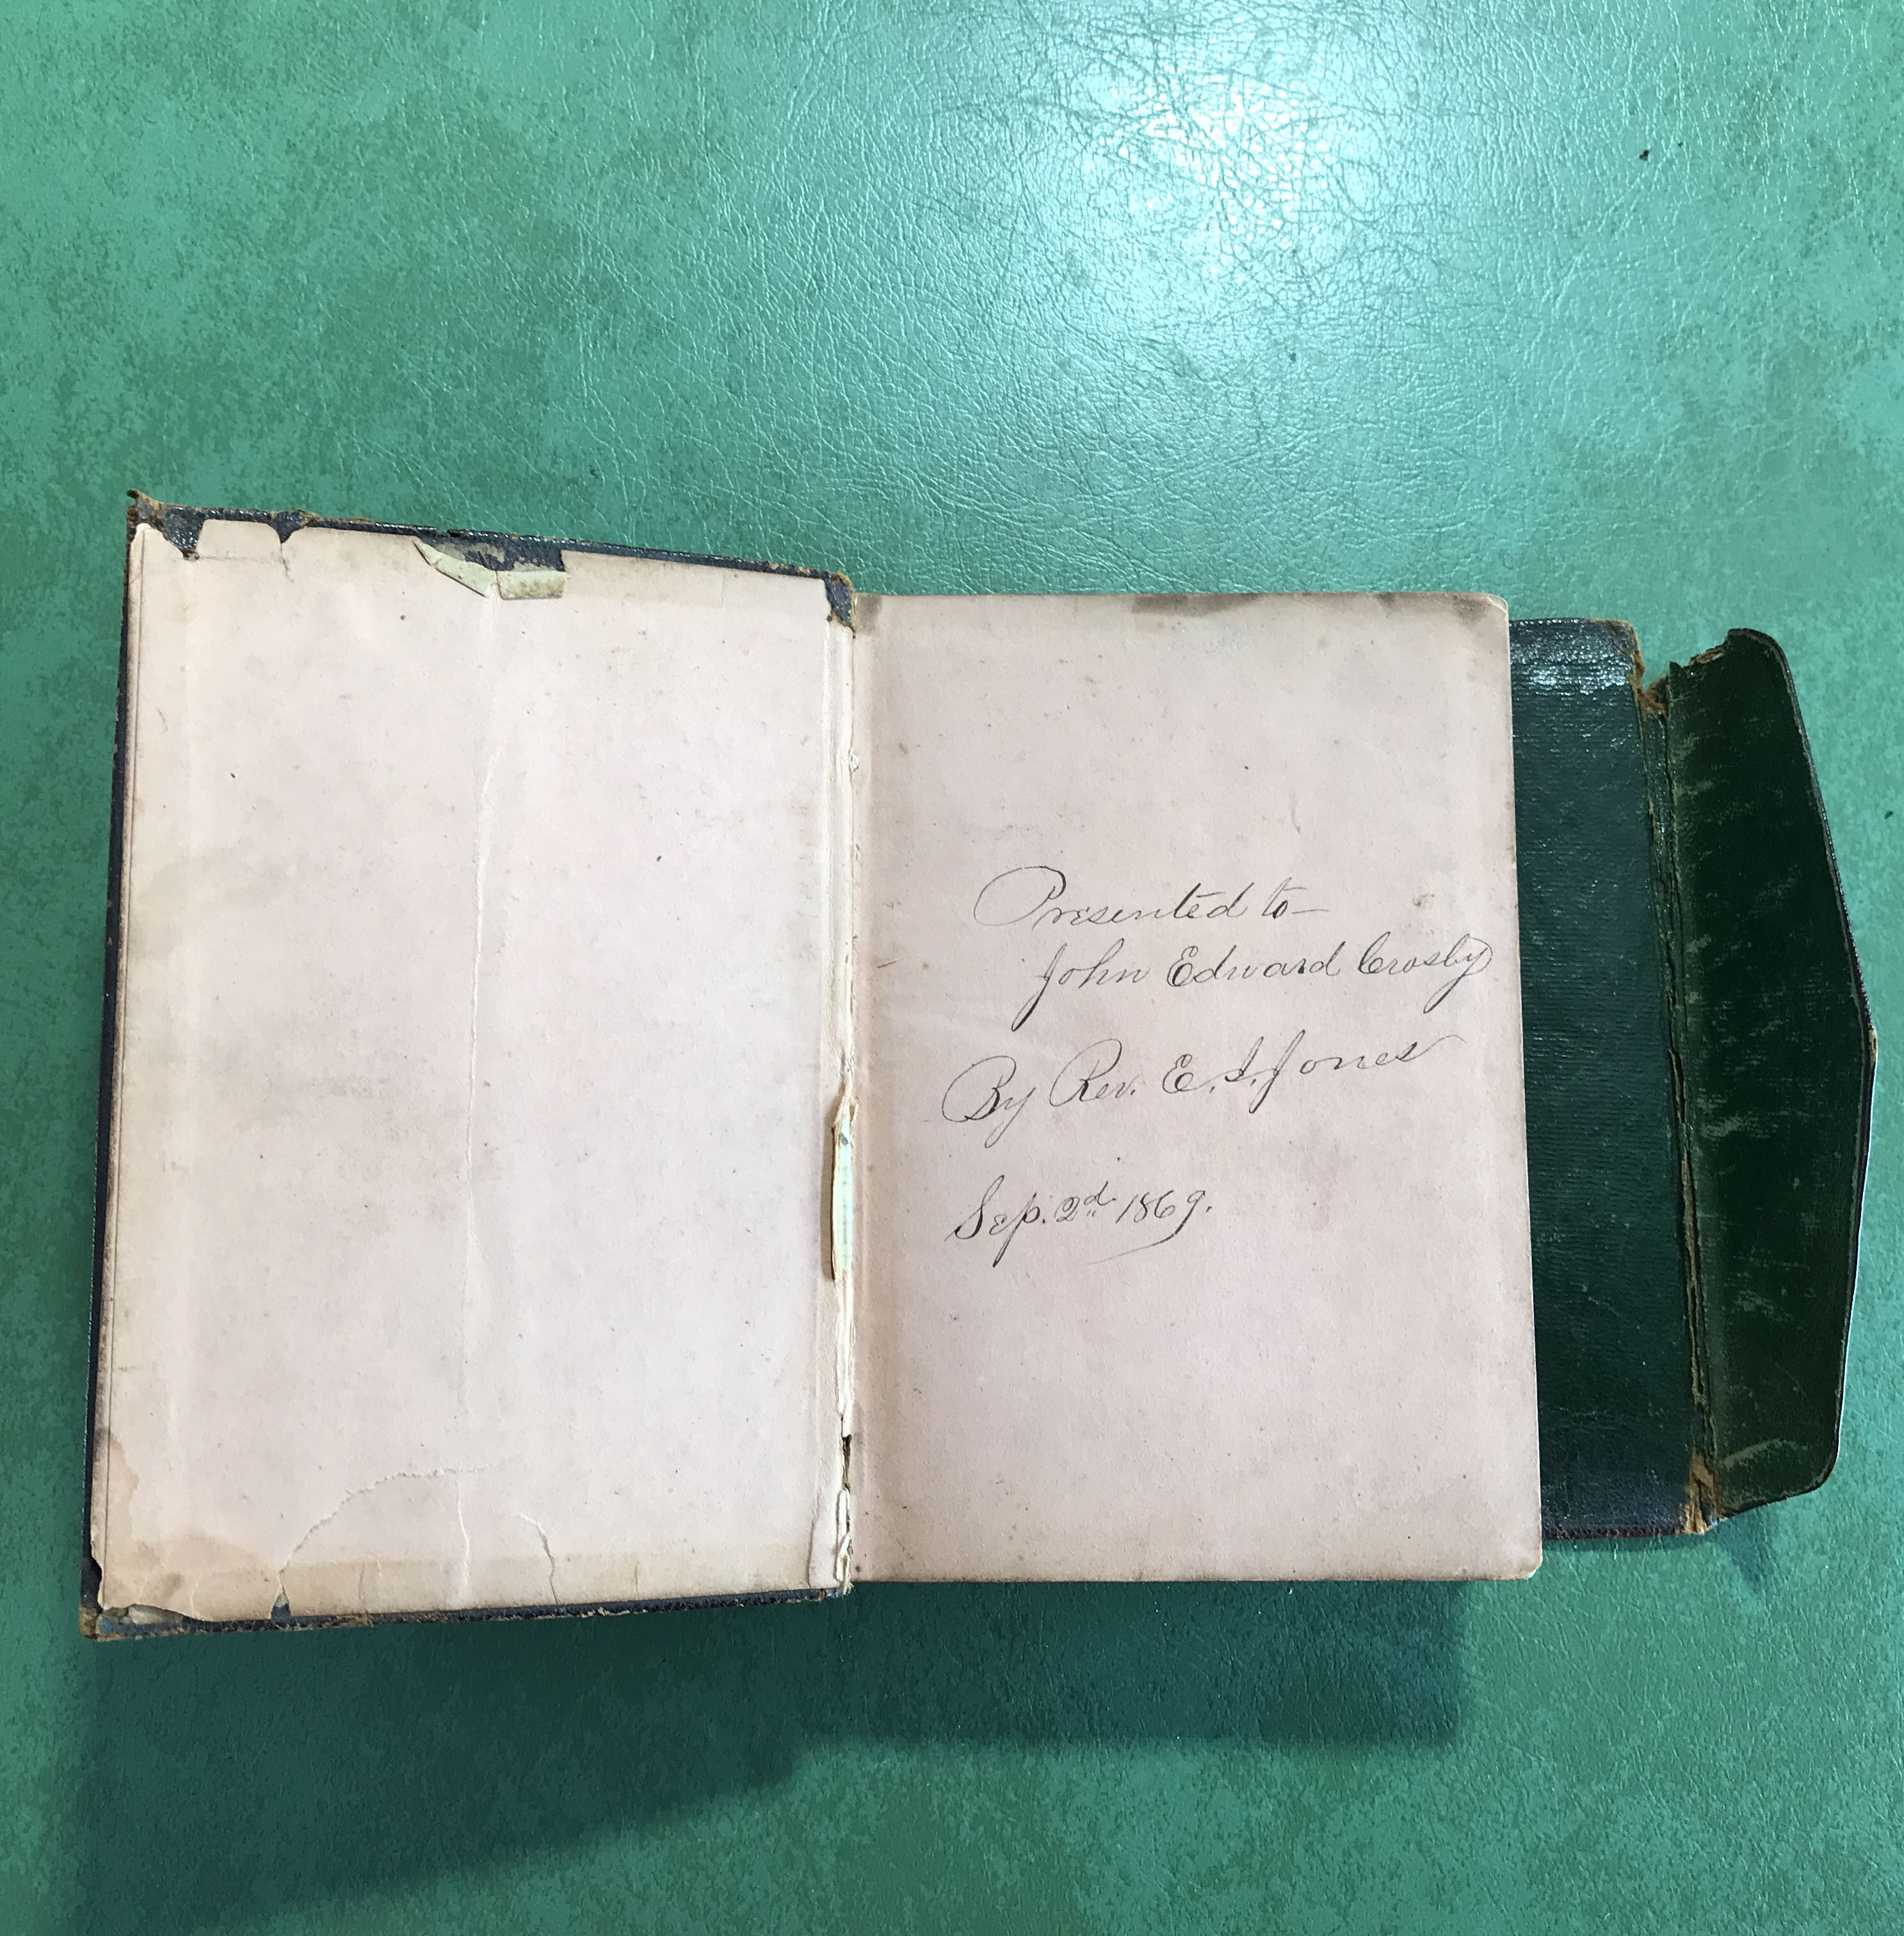 Presented to—
John Edward Crosby
By Rev. E. I. Jones
Sep. 2d 1869.